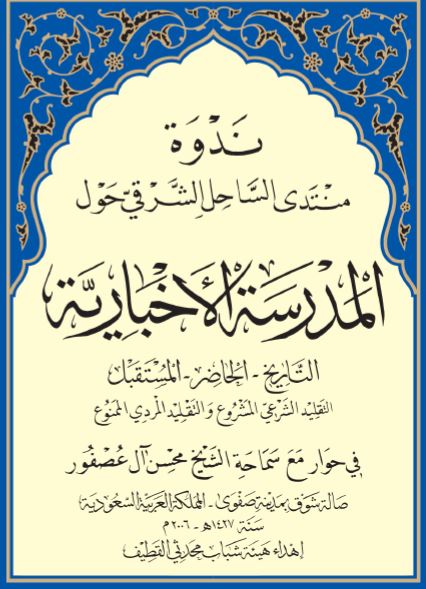 نَدْوَة
مُنْتَدَى السَّاحِلِ الشَّرْقِيّ حَوْل
المَدْرَسَة الأَخْبَارِيَّة
التَّارِيخ - الحَاضِر - المُسْتَقْبَل
التقليد الشرعي المشروع والتقليد المردي الممنوع
في حوار مَعَ سَمَاحَةِ الشَّيْخ مُحْسِن آل عُصْفُور
صالة شوق بمدينة صفوى - المملكة العربية السعودية
سنة ١٤٢٧هـ - ٢٠٠٦م
إهداء هيئة شباب محدثي القطيف